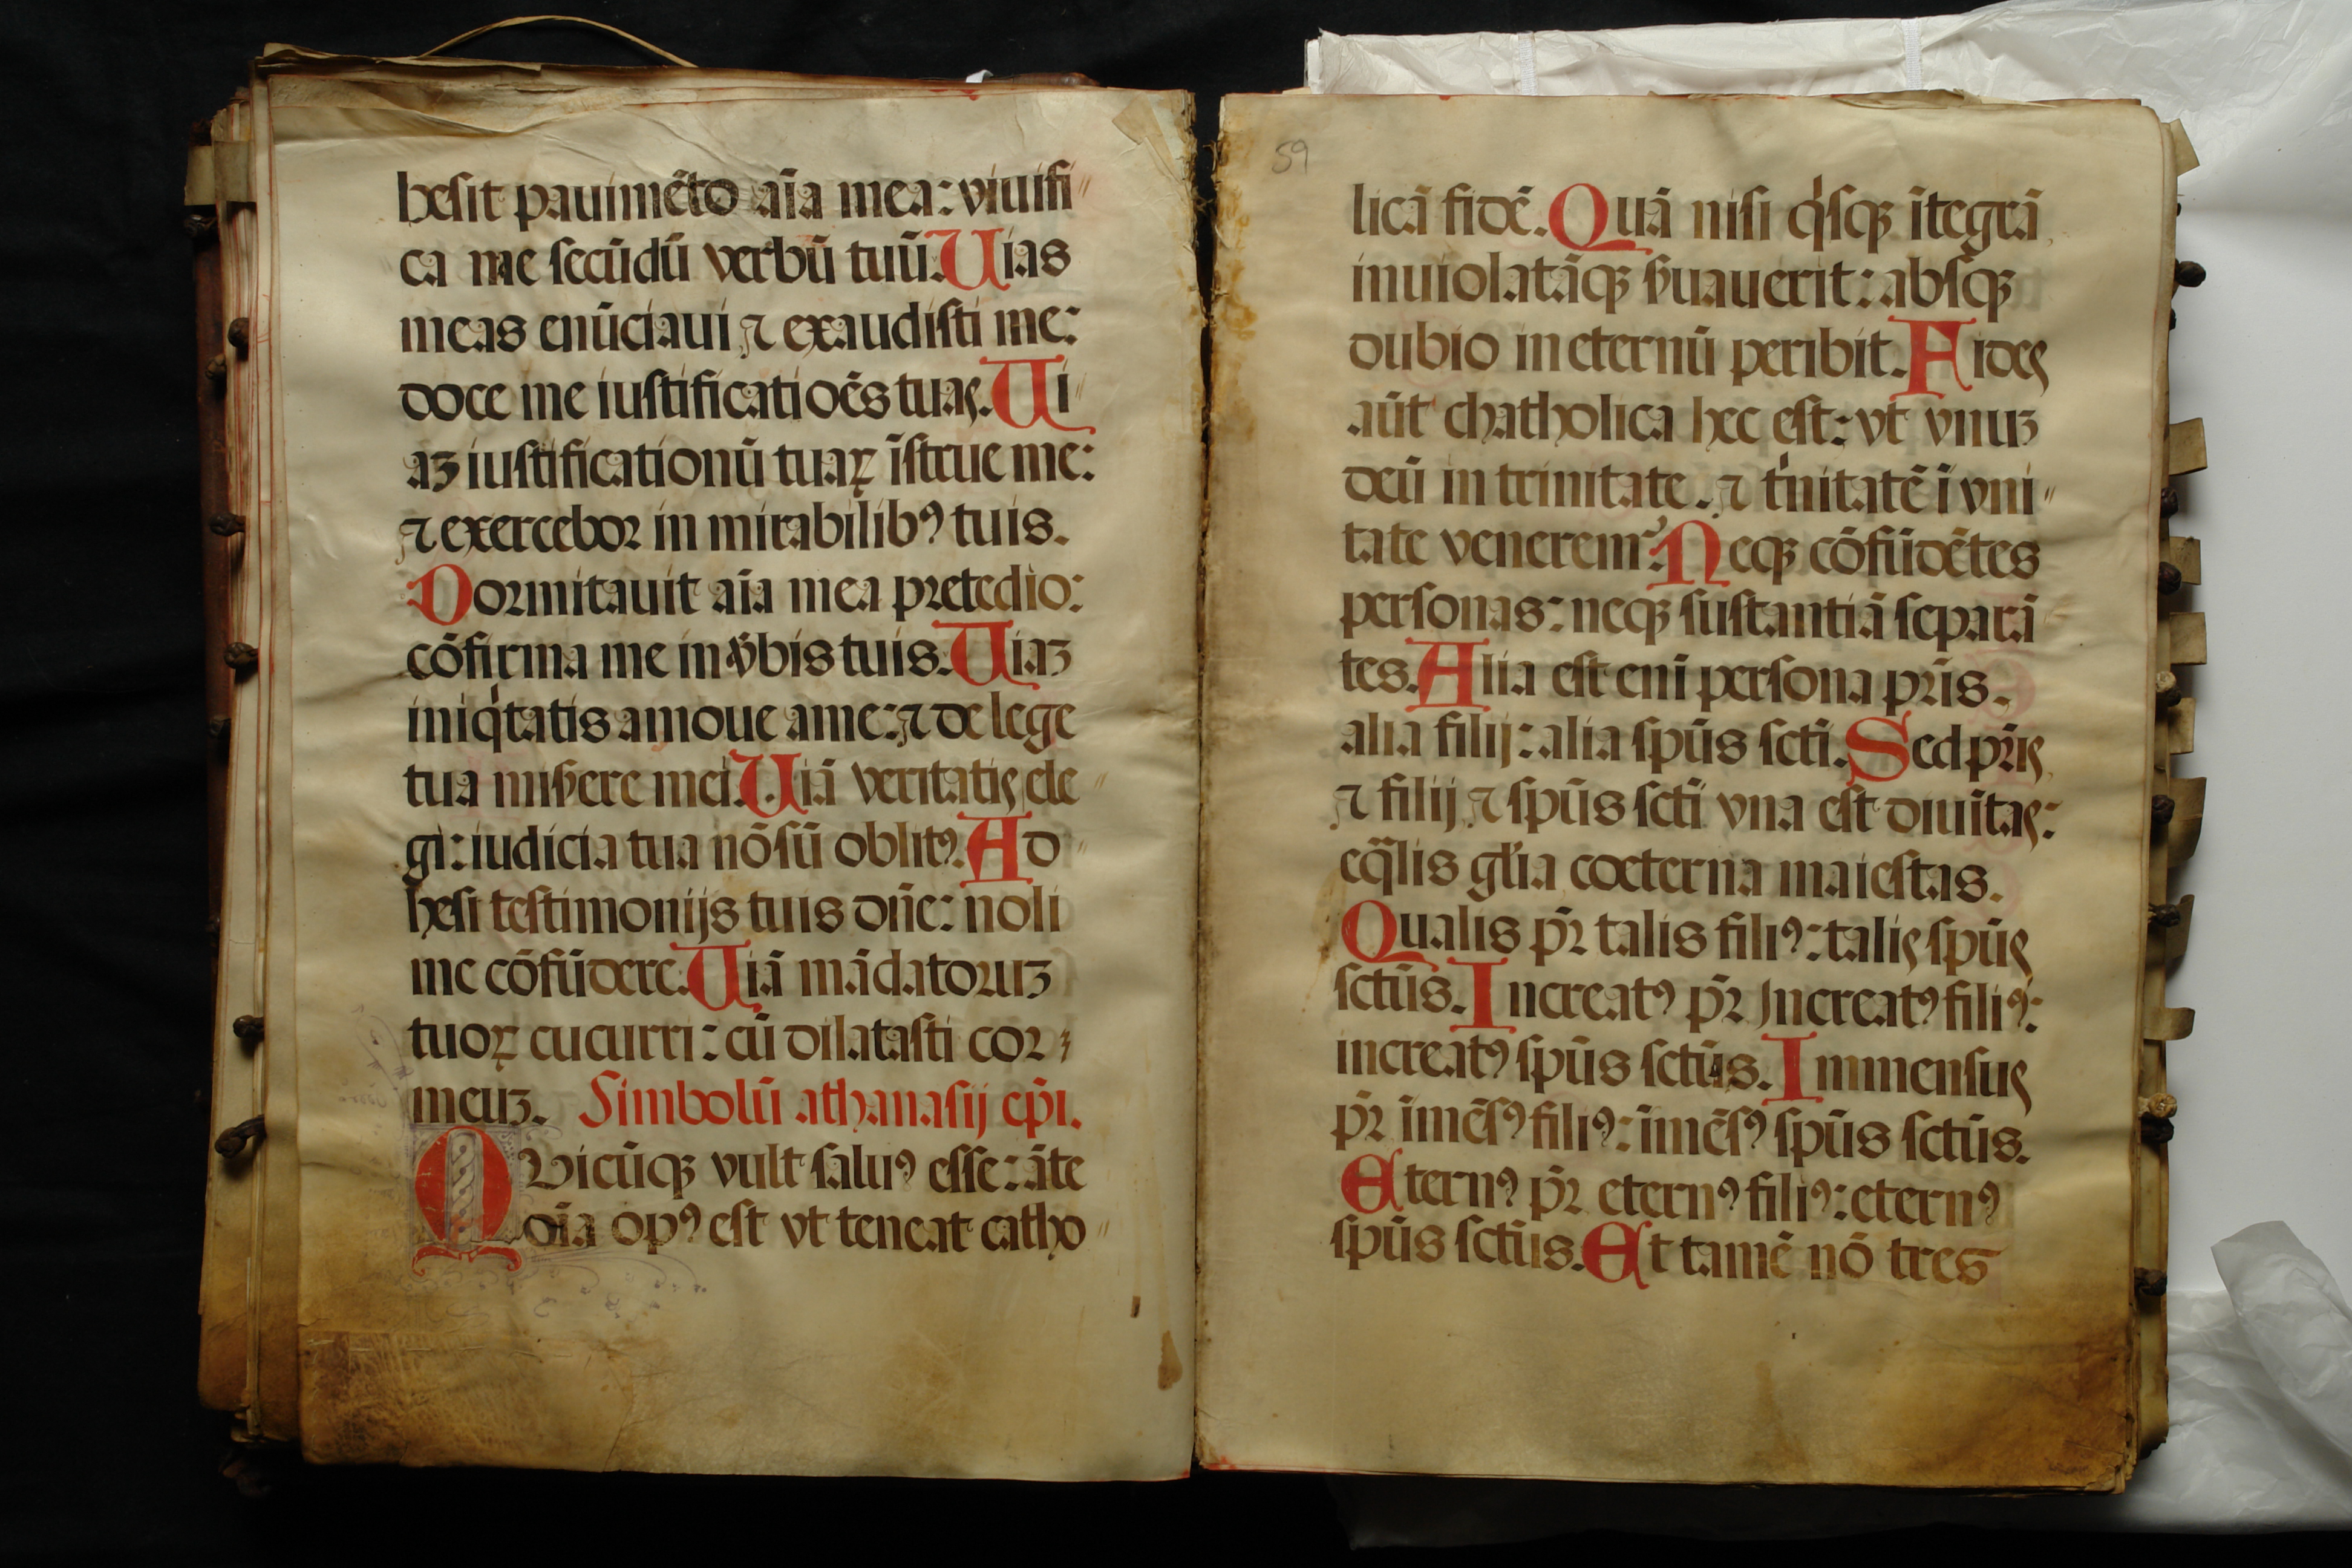 hesit pauimēto aīa mea: viuifi〃
ca me secūdū verbū tuū. Uias
meas enūciaui ⁊ exaudisti me:
doce me iustificatioēs tuas. Ui〃
aꝫ iustificationū tuaꝝ īstrue me:
⁊ exercebor in mirabilibꝰ tuis.
Dormitauit aīa mea pretedio:
cōfirma me in v̄bis tuis. Uiaꝫ
iniq̍tatis amoue ame: ⁊ de lege
tua miẜere mei. Uiā veritatis ele〃
gi: iudicia tua nō sū oblitꝰ. Ad〃
hesi testimonijs tuis dn̄e: noli
me cōfūdere. Uiā mādatoruꝫ
tuoꝝ cucurri: cū dilatasti cor
meuꝫ. Simbolū athanasij ep̄i.
QVicūqꝫ vult saluꝰ esse: āte
oīa opꝰ est vt teneat catho〃
59
licā fidē. Quā nisi q̍sqꝫ ītegrā
inuiolatāqꝫ ẜuauerit: absqꝫ
dubio in eternū peribit. Fides
aūt chatholica hec est: vt vnuꝫ
deū in trinitate. ⁊ t̍nitatē ī vni〃
tate veneremr̉. Neqꝫ cōfūdētes
personas: neqꝫ sustantiā separā
tes. Alia est enī persona pr̄is.
alia filij: alia spūs sctī. Sed pr̄is
⁊ filij ⁊ spūs sctī vna est diuitas:
eq̄lis gl̄ia coeterna maiestas.
Qualis pr̄ talis filiꝰ: talis spūs
sctūs. Increatꝰ pr̄ Jncreatꝰ filiꝰ:
increatꝰ spūs sctūs. Immensus
pr̄ īmēsꝰ filiꝰ: īmēsꝰ spūs sctūs.
Eternꝰ pr̄ eternꝰ filiꝰ: eternꝰ
spūs sctūs. Et tamē nō tres